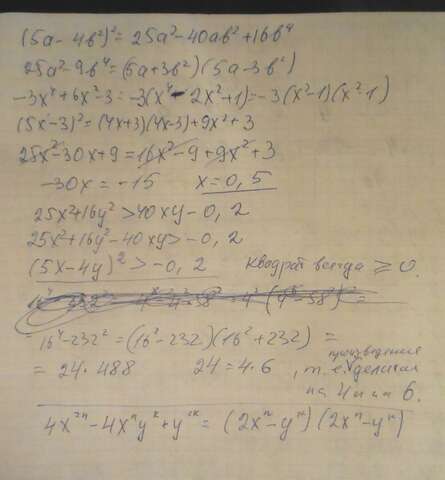 (5a - 4b²)² = 25a² - 40ab² + 16b⁴
25a² - 9b⁴ = (5a + 3b²)(5a - 3b²)
-3x⁴ + 6x² - 3 = -3(x⁴ - 2x² + 1) = -3(x² - 1)(x² - 1)
(5x - 3)² = (4x + 3)(4x - 3) + 9x² + 3
25x² - 30x + 9 = 16x² - 9 + 9x² + 3
-30x = -15 x = 0,5
25x² + 16y² > 40xy - 0,2
25x² + 16y² - 40xy > -0,2
(5x - 4y)² > -0,2 Квадрат всегда ≥ 0.
= 16⁴ - 232² = (16² - 232)(16² + 232) =
= 24 · 488 24 = 4 · 6 , произведение
т.е. делится
на 4 и на 6.
4x²ⁿ - 4xⁿyᵏ + y²ᵏ = (2xⁿ - yᵏ)(2xⁿ - yᵏ)